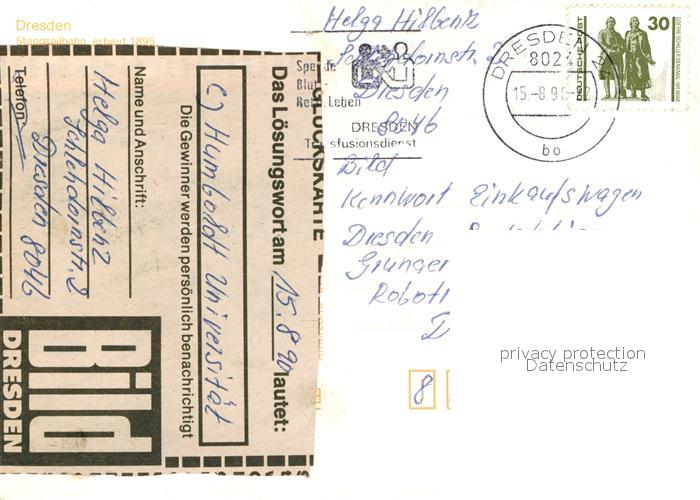 Dresden
Standseilbahn, erbaut 1895
GLÜCKSKARTE
Das Lösungswort am 15.8.90 lautet:
c) Humboldt Universität
Die Gewinner werden persönlich benachrichtigt
Name und Anschrift:
Helga Hilbenz
Dresden 8046
Telefon
Bild
DRESDEN
Helga Hilbenz
Dresden
8046
Bild
Kennwort Einkaufswagen
Dresden
Robotr
D
8
Blut
Leben
DRESDEN
sfusionsdienst
DRESDEN
8024
15.-8.90
bo
DEUTSCHE POST
30
privacy protection
Datenschutz